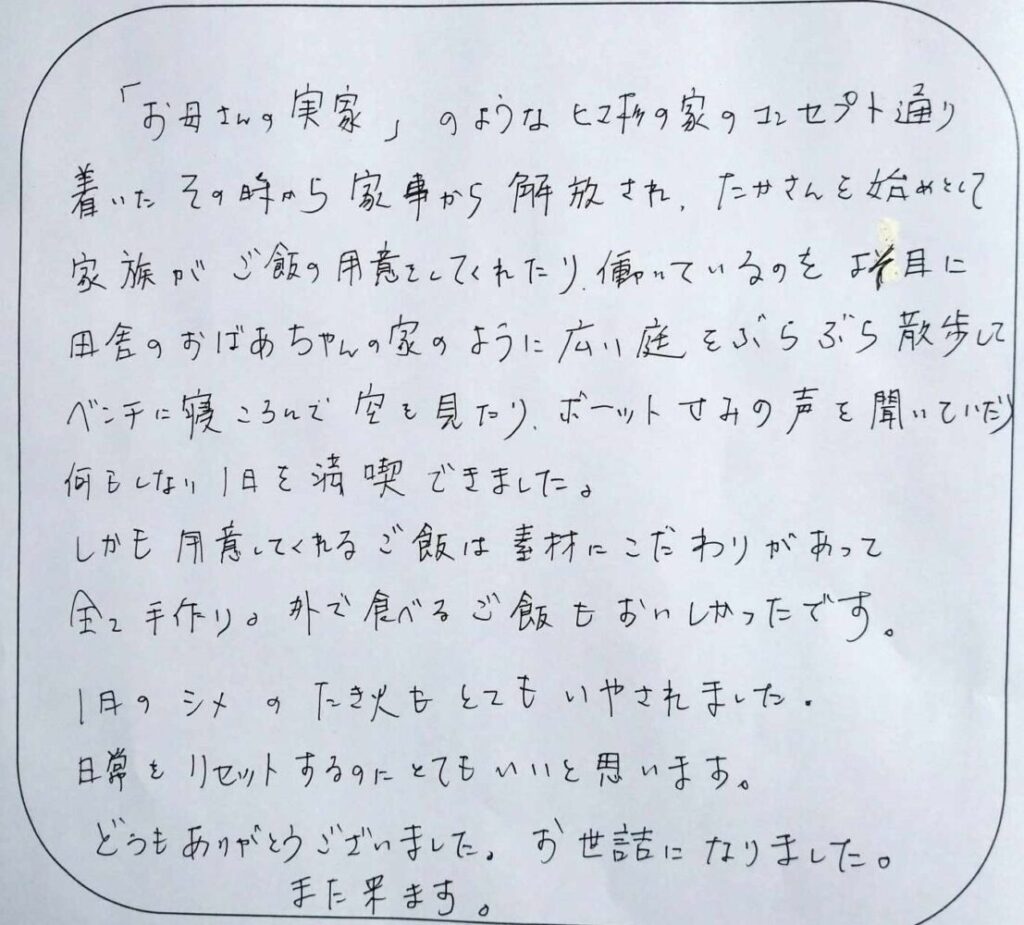 「お母さんの実家」のようなヒマ杉の家のコンセプト通り
着いたその時から家事から解放され、たかさんを始めとして
家族がご飯の用意をしてくれたり、働いているのをよそ目に
田舎のおばあちゃんの家のように広い庭をぶらぶら散歩して
ベンチに寝ころんで空を見たり、ボーットせみの声を聞いていたり
何もしない1日を満喫できました。
しかも用意してくれるご飯は素材にこだわりがあって
全て手作り。外で食べるご飯もおいしかったです。
1日のシメのたき火もとてもいやされました.
日常をリセットするのにとてもいいと思います。
どうもありがとうございました。お世詰になりました。
また来ます。